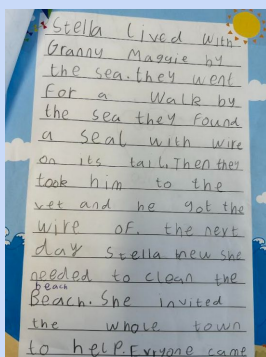 Stella lived with
Granny Maggie by
the sea. they went
For a Walk by
the sea they found
a seal with wire
on its tail. Then they
took him to the
vet and he got the
wire of. the next
day Stella new she
needed to clean the
beach
Beach. She invited
the whole town
to help. Evryone came